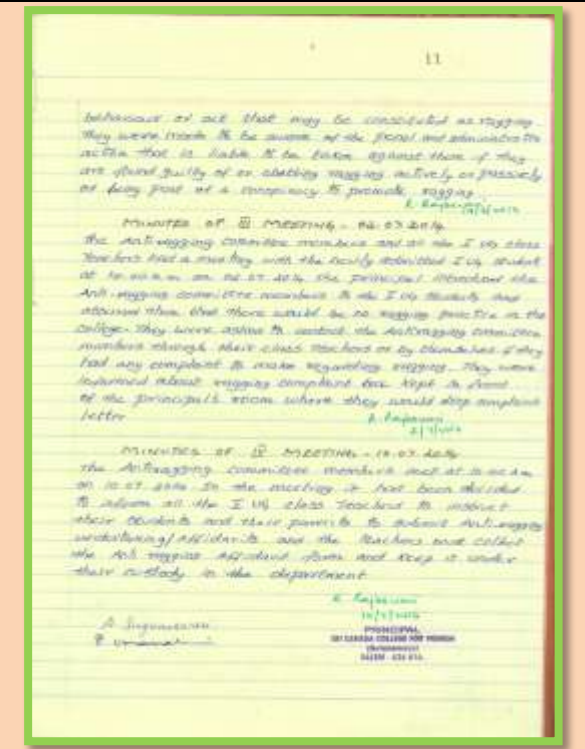 11
behaviour or act that may be constituted as ragging
They were made to be aware of the penal and administrative
action that is liable to be taken against them if they
are found guilty of or abetting ragging actively or passively
or being part of a conspiracy to promote ragging.
MINUTES OF III MEETING - 02.07.2014
The Antiragging committee members and all the I UG class
Teachers had a meeting with the newly admitted I UG student
at 10.00 a.m. on 02.07.2014 the principal introduced the
Anti-ragging committee members to the I UG students and
assured them that there would be no ragging practice in the
college. They were asked to contact the Antiragging committee
members through their class teachers or by themselves if they
had any complaint to make regarding ragging. They were
informed about ragging complaint box kept in front
of the principal's room where they would drop complaint
letter
MINUTES OF IV MEETING - 10.07.2014
The Antiragging committee members met at 10.00 am
on 10.07.2014 In the meeting it had been decided
to inform all the I UG class Teachers to instruct
their students and their parents to submit Anti-ragging
undertaking/Affidavits and the teachers must collect
the Anti ragging Affidavit form and keep it under
their custody in the department
PRINCIPAL
SRI SARADA COLLEGE FOR WOMEN
(Autonomous)
SALEM - 636 016.